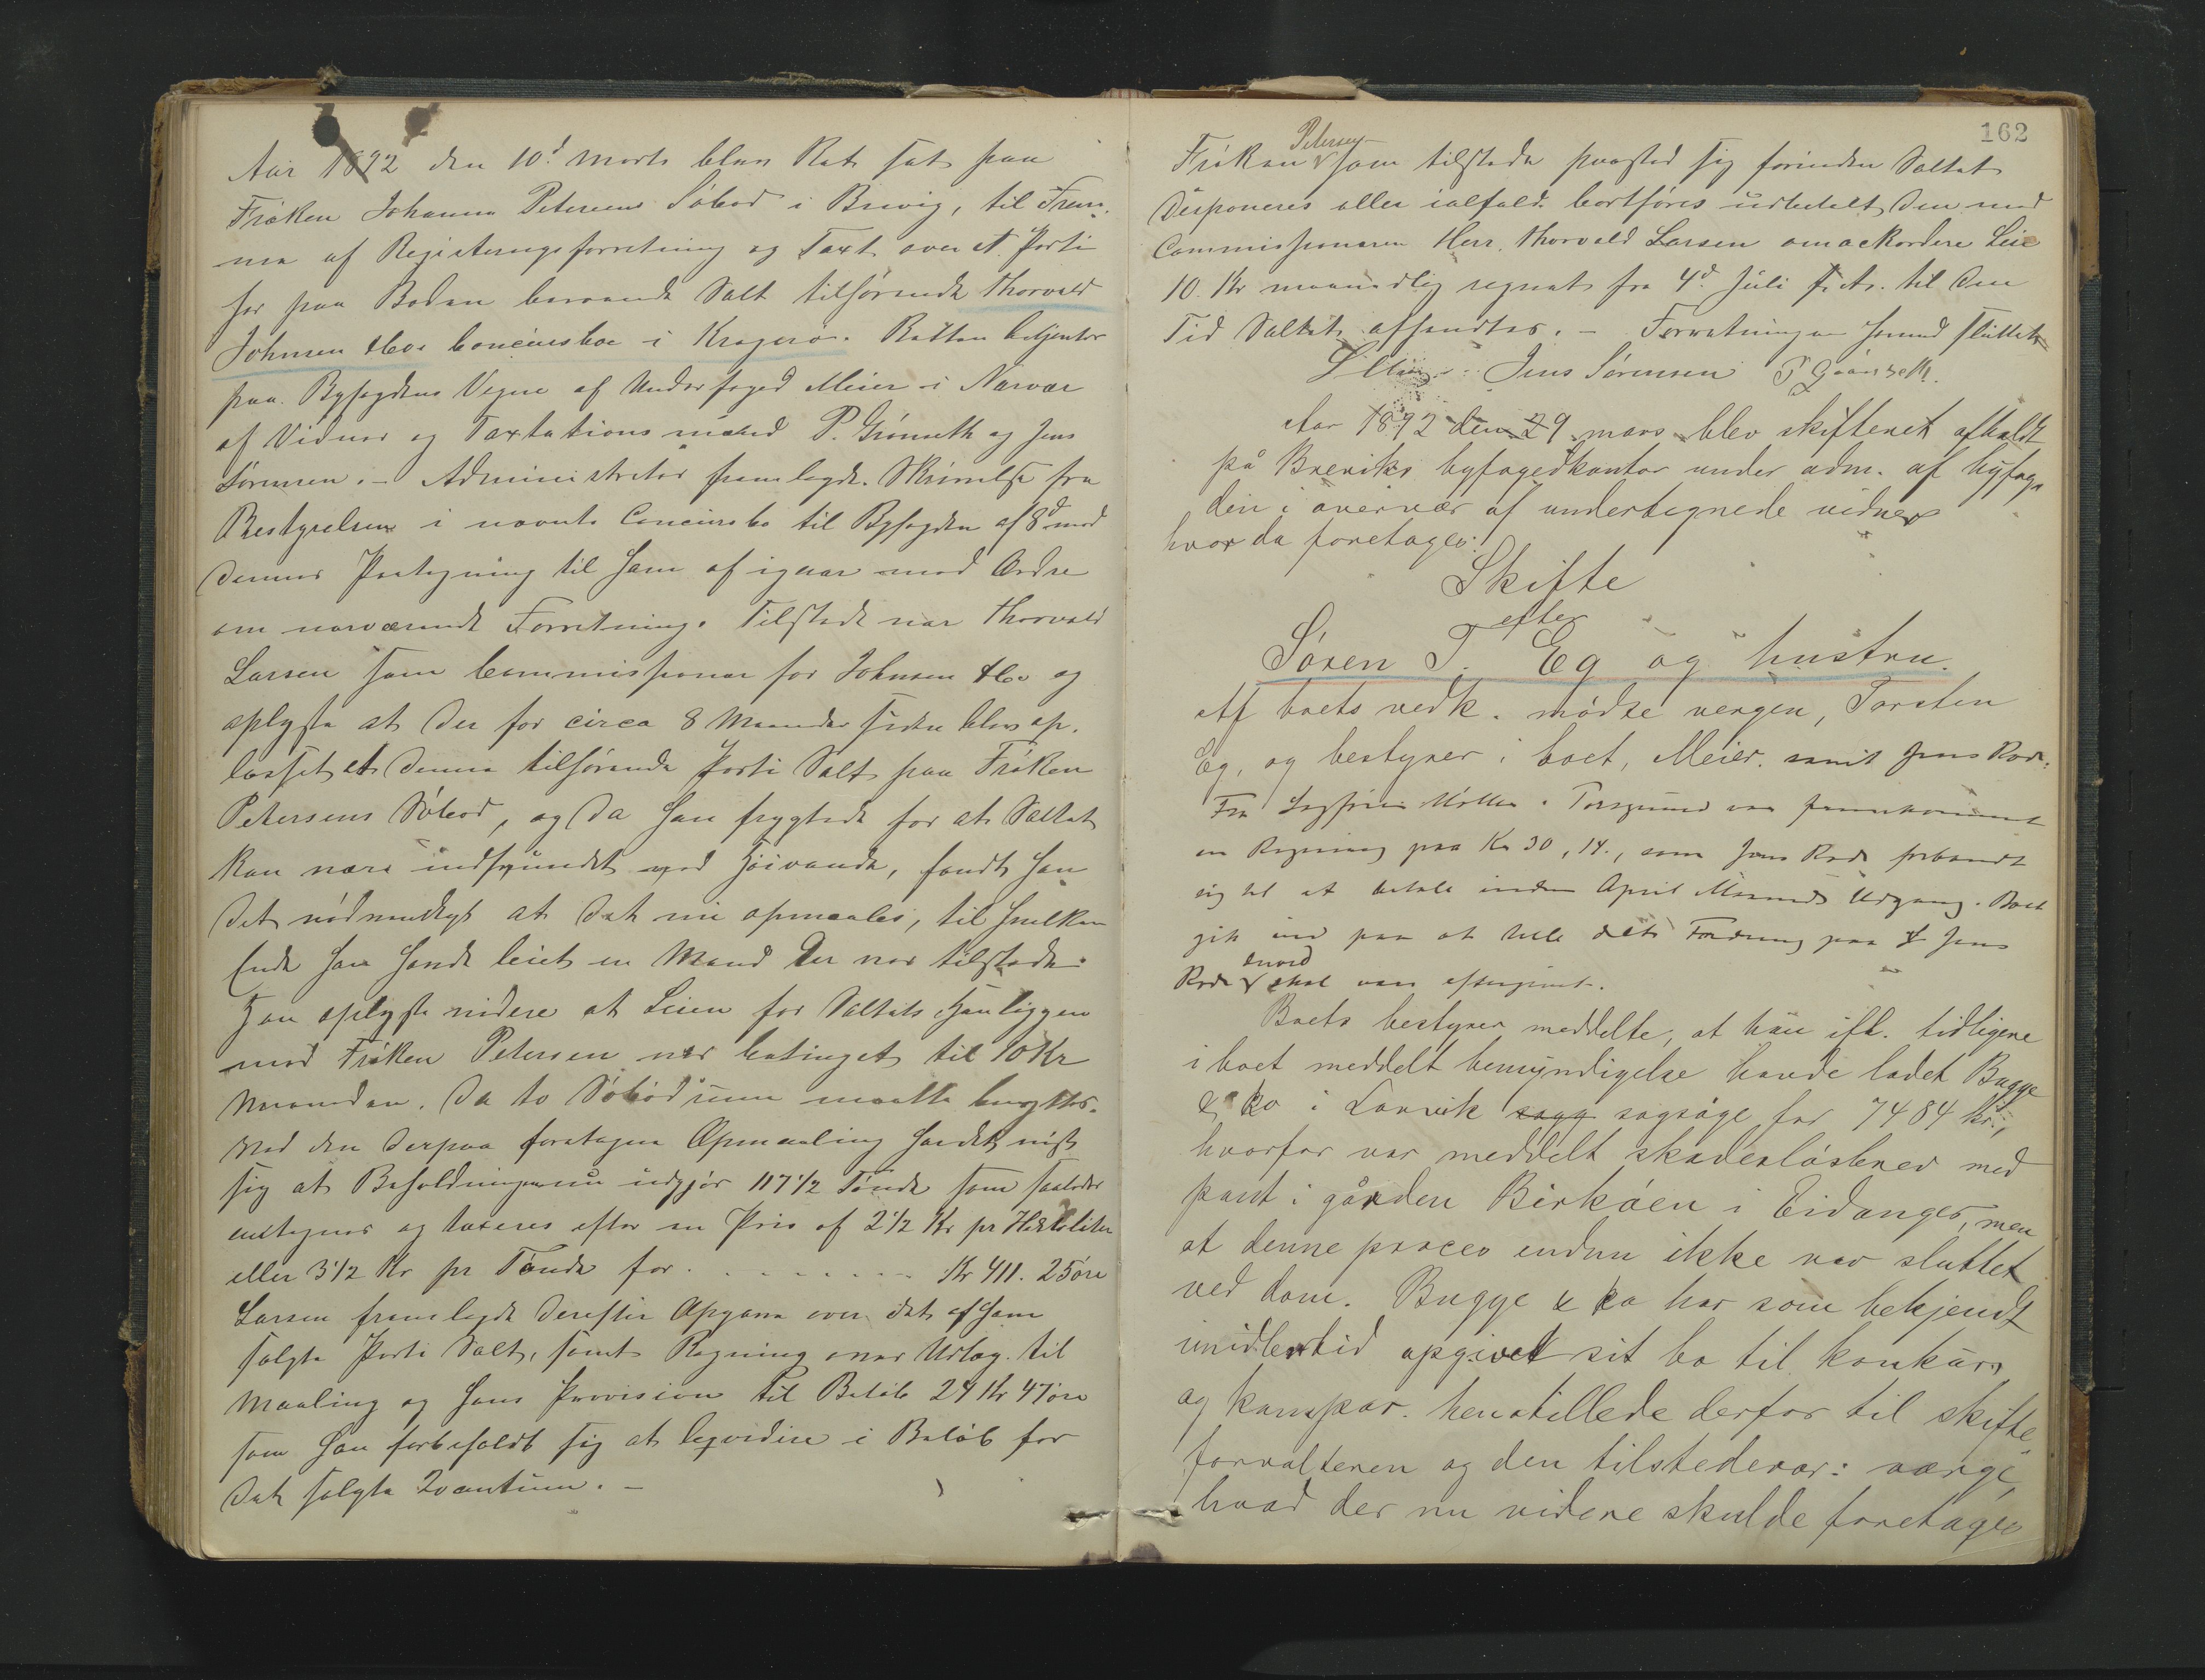 Aar 1892 den 10d Marts blev Ret sat paa
Frøken Johanna Petersens Søbod i Brevig, til Frem-
me af Registeringsforretning og Taxt over et Parti
her paa Boden beroende Salt tilhørende Thorvald
Johnsen &Co. Concursbo i Kragerø. Retten betjentes
paa Byfogdens Vegne af Underfoged Meier i Nærvær
af Vidner og Taxtationsmænd P. Grønseth og Jens
Sørensen. – Administrator fremlagde Skrivelse fra
Bestyrelsen i nævnte Concursbo til Byfogden af 8d med
dennes Paategning til ham af igaar med Ordre
om nærværende Forretning. Tilstede var Thorvald
Larsen som Commissionær for Johnsen &Co og
oplyste at der for circa 8 Maaneder siden blev op-
losset et denne tilhørende Parti Salt paa Frøken
Petersens Søbod, og da han frygtede for at Saltet
kan være indsvundet ved Høivande, fandt han
det nødvendigt at det nu opmaales, til hvilken
Ende han havde leiet en Mand der var tilstede.
Han oplyste videre at Leien for Saltets Henliggen
med Frøken Petersen var betinget til 10 Kr
Maaneden. Da to Søbodrum maatte benyttes.
Ved den derpaa foretagne Opmaaling havde det vist
sig at Beholdningen nu udgjør 117½ Tønde som saaledes
antegnes og taxeres efter en Pris af 2½ Kr pr Hektoliter
eller 3½ Kr pr Tønde for . . . . . . . . Kr 411. 25 øre
Larsen fremlagde derefter Opgave over det af ham
solgte Parti Salt, samt Regning over Udlæg til
Maaling og hans Provision til Beløb 24 Kr 47 øre
som han forbeholdt sig at liqvidere i Beløb for
det solgte Qvantum. –
162
Petersen
Frøken v som tilstede paastod sig forinden Saltet
disponeres eller ialfald bortføres udbetalt den med
Commissionæren Herr. Thorvald Larsen omackordere Leie
10. Kr maanedlig regnet fra 4d Juli f. A. til den
Tid Saltet afhendtes. – Forretningen hermed sluttet
Meier Jens Sørensen P Grønseth.
Aar 1892 den 29 mars blev skifteret afholdt
på Breviks byfogedkontor under adm. af byfog-
den i overvær af undertegnede vidner
hvor da foretoges:
Skifte
efter
Søren T. Eg og hustru.
Af boets vedk. mødte vergen, Torsten
Eg, og bestyrer i boet, Meier. samt Jens Rode.
Fra Sagfører Møller i Porsgrund var fremkommet
en Regning paa Kr 30,14., som Jens Rode forbandt
sig til at betale inden April Maaneds Udgang. Boet
gik ind paa at hele dets Fordring paa Jens
derved
Rode v skal være eftergivet.
Boets bestyrer meddelte, at han ifl. tidligere
i boet meddelt bemyndigelse havde ladet Bugge
& ko i Larvik sagsøge for 7484 kr.,
hvorfor var meddelt skadesløsbrev med
pant i gården Birkåen i Eidanger, men
at denne proces endnu ikke var sluttet
ved dom. Bugge & ko har som bekjendt
imidlertid opgivet sit bo til konkurs,
og kompar. henstillede derfor til skifte-
forvalteren og den tilstedevær: værge,
hvad der nu videre skulde foretages